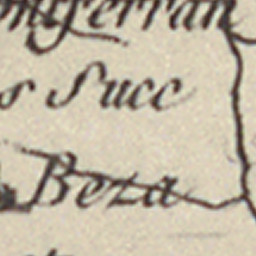 ontferran
s Succ
Beza